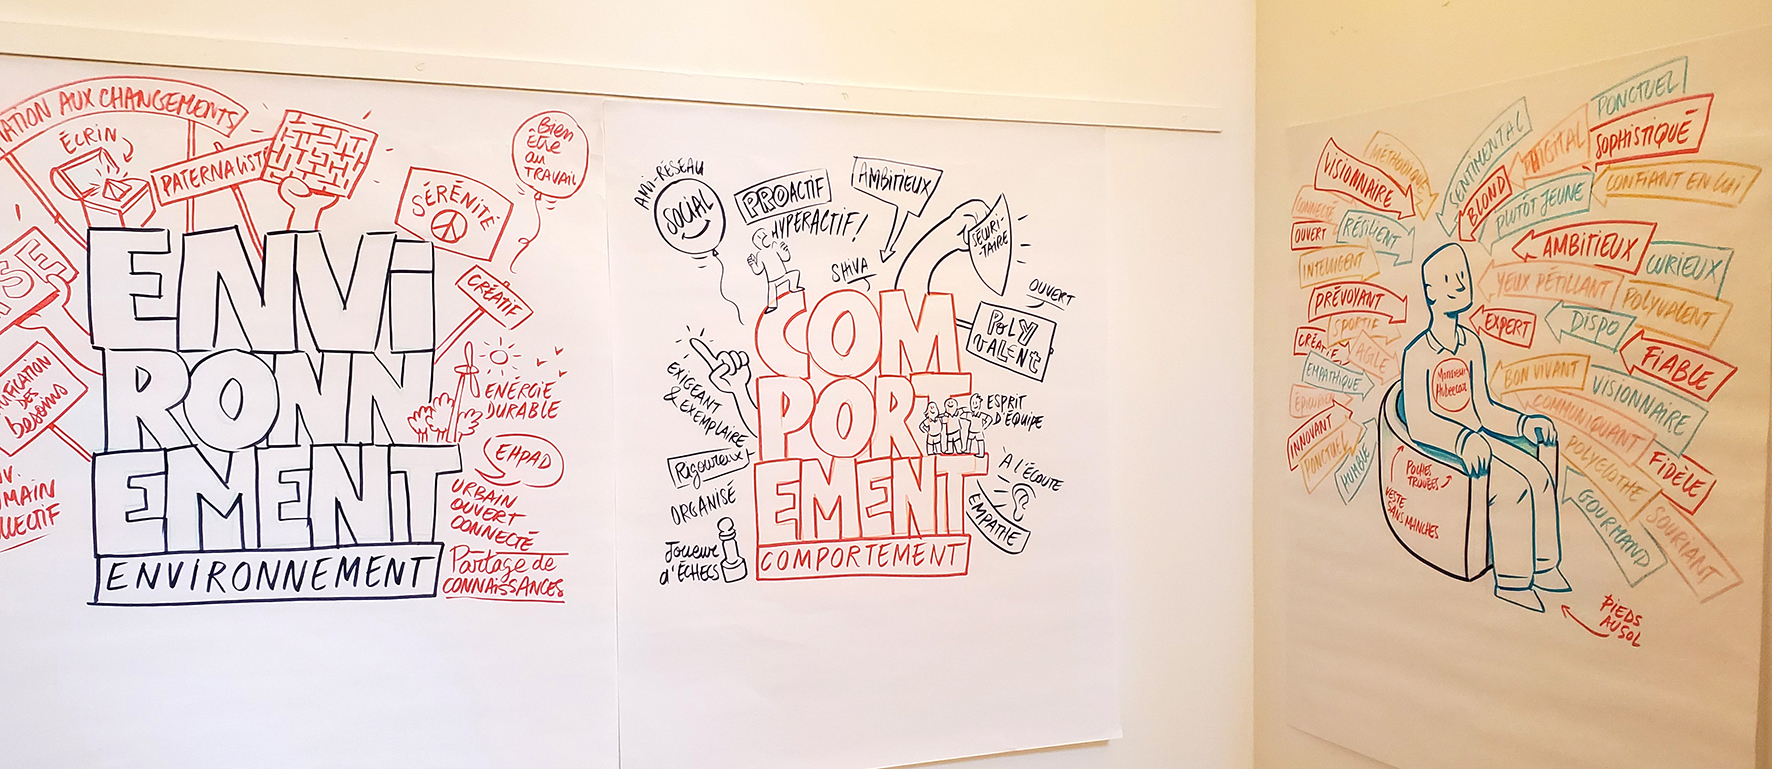 AUX CHANGEMENTS
ÉCRIN
PATERNALISTE
Bien
être
au
TRAVAIL
SÉRÉNITÉ
CRÉATIF
ENVI
RONN
EMENT
ENVIRONNEMENT
DES
besoins
ÉNERGIE
DURABLE
EHPAD
URBAIN
OUVERT
CONNECTÉ
Partage de
CONNAISSANCES
AMI-RÉSEAU
SOCIAL
PROACTIF
HYPERACTIF!
AMBITIEUX
SHIVA
SÉCURI-
TAIRE
OUVERT
POLY
VALENT
EXIGEANT
& EXEMPLAIRE
COM
PORT
EMENT
COMPORTEMENT
ESPRIT
D'ÉQUIPE
Rigoureux
ORGANISÉ
Joueur
d'ÉCHECS
À L'ÉCOUTE
EMPATHIE
VISIONNAIRE
CONNECTÉ
OUVERT
RÉSILIENT
INTELLIGENT
PRÉVOYANT
SPORTIF
CRÉATIF
AGILE
EMPATHIQUE
INNOVANT
PONCTUEL
HUMBLE
SENTIMENTAL
BLOND
DIGITAL
PONCTUEL
SOPHISTIQUÉ
CONFIANT EN LUI
PLUTÔT JEUNE
AMBITIEUX
CURIEUX
YEUX PÉTILLANT
POLYVALENT
EXPERT
DISPO
FIABLE
BON VIVANT
VISIONNAIRE
COMMUNIQUANT
POLYGLOTHE
FIDÈLE
GOURMAND
SOURIANT
Monsieur
POCHES
TROUÉES
VESTE
SANS MANCHES
PIEDS
AU SOL